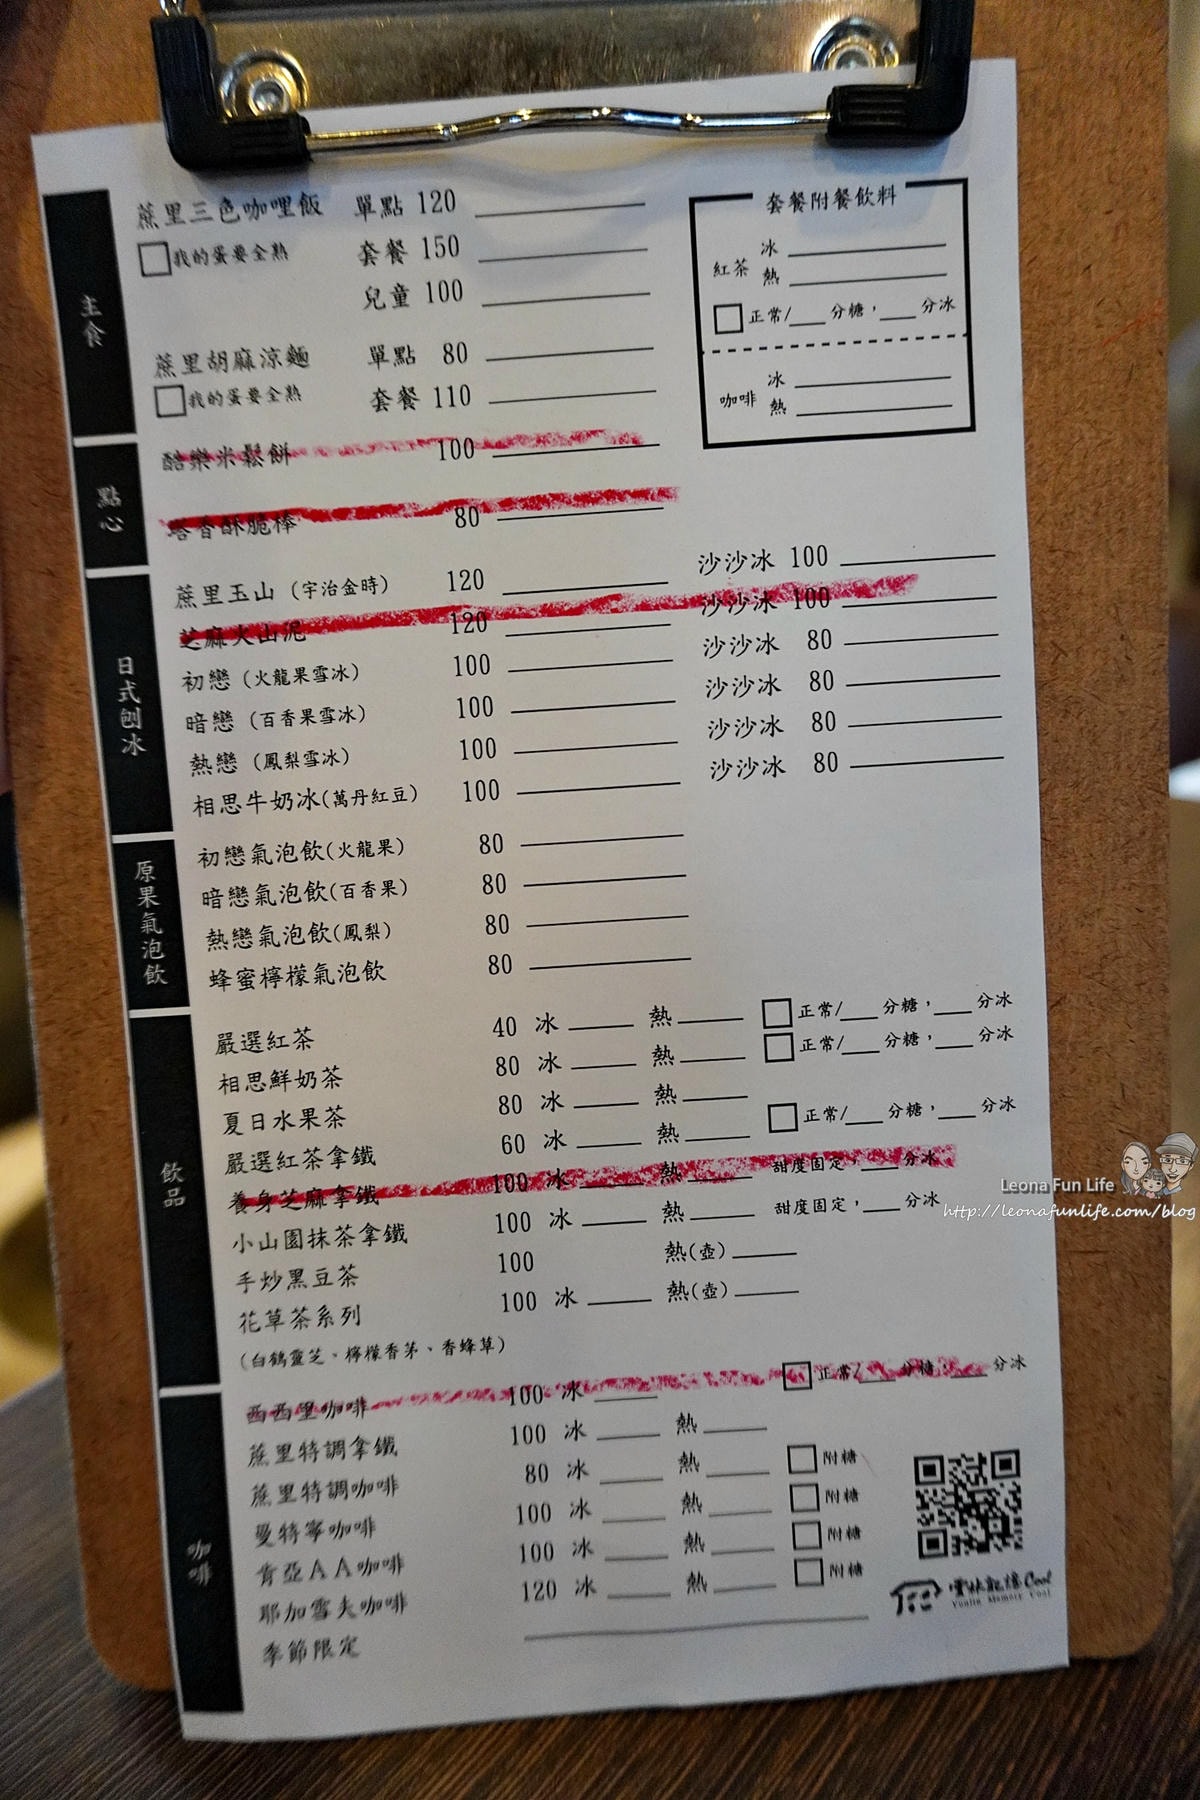 主食
蔗里三色咖哩飯 單點 120
我的蛋要全熟 套餐 150
兒童 100
蔗里胡麻涼麵 單點 80
我的蛋要全熟 套餐 110
套餐附餐飲料
紅茶 冰
熱
正常/ 分糖, 分冰
咖啡 冰
熱
點心
酷樂米鬆餅 100
塔香酥脆棒 80
日式刨冰
蔗里玉山 (宇治金時) 120 沙沙冰 100
芝麻火山泥 120 沙沙冰 100
初戀 (火龍果雪冰) 100 沙沙冰 80
暗戀 (百香果雪冰) 100 沙沙冰 80
熱戀 (鳳梨雪冰) 100 沙沙冰 80
相思牛奶冰(萬丹紅豆) 100 沙沙冰 80
原果氣泡飲
初戀氣泡飲(火龍果) 80
暗戀氣泡飲(百香果) 80
熱戀氣泡飲(鳳梨) 80
蜂蜜檸檬氣泡飲 80
飲品
嚴選紅茶 40 冰 熱 正常/ 分糖, 分冰
相思鮮奶茶 80 冰 熱 正常/ 分糖, 分冰
夏日水果茶 80 冰 熱
嚴選紅茶拿鐵 60 冰 熱 正常/ 分糖, 分冰
養身芝麻拿鐵 100 冰 熱 甜度固定, 分冰
小山園抹茶拿鐵 100 冰 熱 甜度固定, 分冰
手炒黑豆茶 100 熱(壺)
花草茶系列 100 冰 熱(壺)
(白鶴靈芝、檸檬香茅、香蜂草)
咖啡
西西里咖啡 100 冰 正常/ 分糖, 分冰
蔗里特調拿鐵 100 冰 熱
蔗里特調咖啡 80 冰 熱 附糖
曼特寧咖啡 100 冰 熱 附糖
肯亞AA咖啡 100 冰 熱 附糖
耶加雪夫咖啡 120 冰 熱 附糖
季節限定
雲林記憶Cool
Yunlin Memory Cool
Leona Fun Life
http://leonafunlife.com/blog